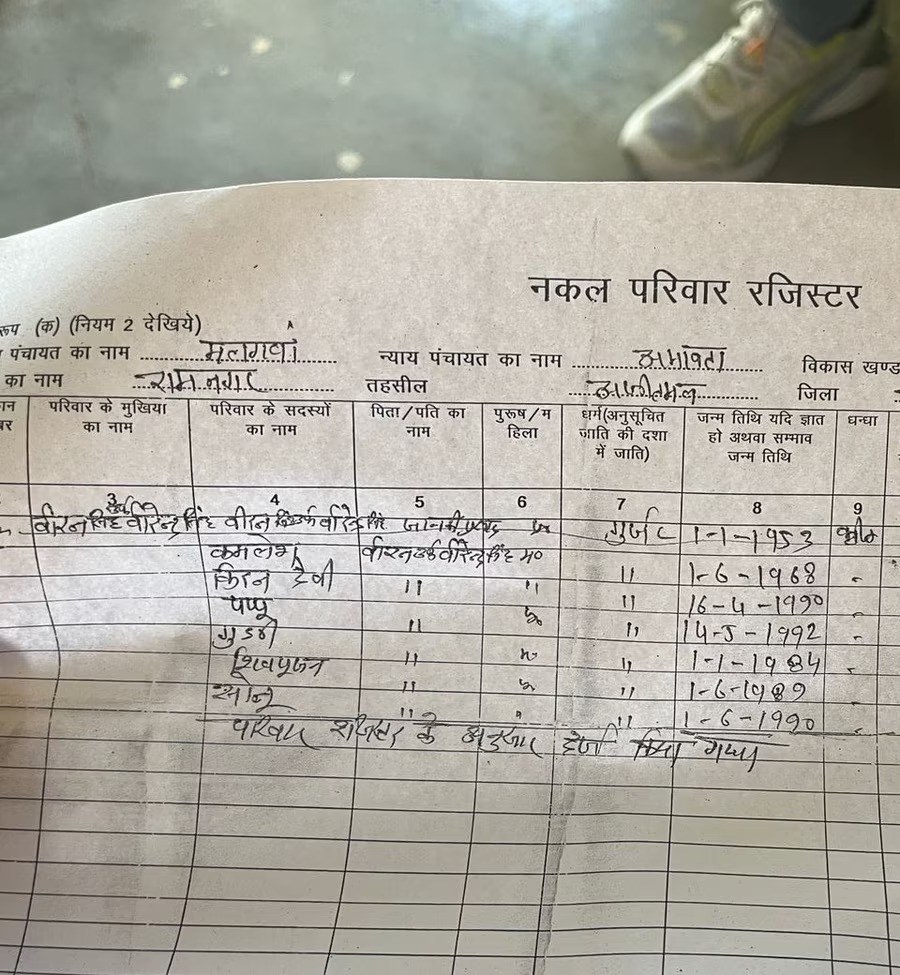 नकल परिवार रजिस्टर
रूप (क) (नियम 2 देखिये)
पंचायत का नाम मलगवां न्याय पंचायत का नाम अमावता विकास खण्ड
का नाम रामनगर तहसील अजीतमल जिला
परिवार के मुखिया का नाम परिवार के सदस्यों का नाम पिता/पति का नाम पुरूष/महिला धर्म(अनुसूचित जाति की दशा में जाति) जन्म तिथि यदि ज्ञात हो अथवा सम्माव जन्म तिथि धन्धा
3 4 5 6 7 8 9
वीरन सिंह उर्फ वीरेन्द्र सिंह वीरन सिंह उर्फ वीरेन्द्र सिंह जानकी प्रसाद पु० गुर्जर 1-1-1953
कमलेश वीरन उर्फ वीरेन्द्र सिंह म० '' 1-6-1968
किरन देवी '' '' '' 16-4-1990
पप्पू '' पु० '' 14-5-1992
गुड्डी '' म० '' 1-1-1984
शिवपूजन '' पु० '' 1-6-1989
सोनू '' '' '' 1-6-1990
परिवार रजिस्टर के अनुसार दर्ज किया गया